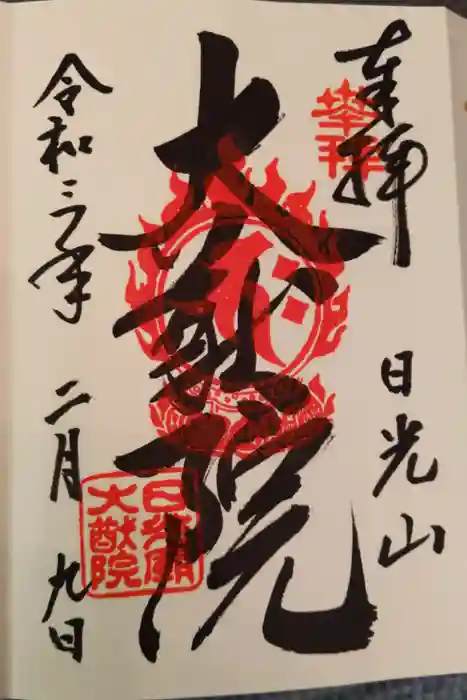 奉拝
日光山
奉拝
大猷院
令和三年
二月九日
日光廟
大猷院